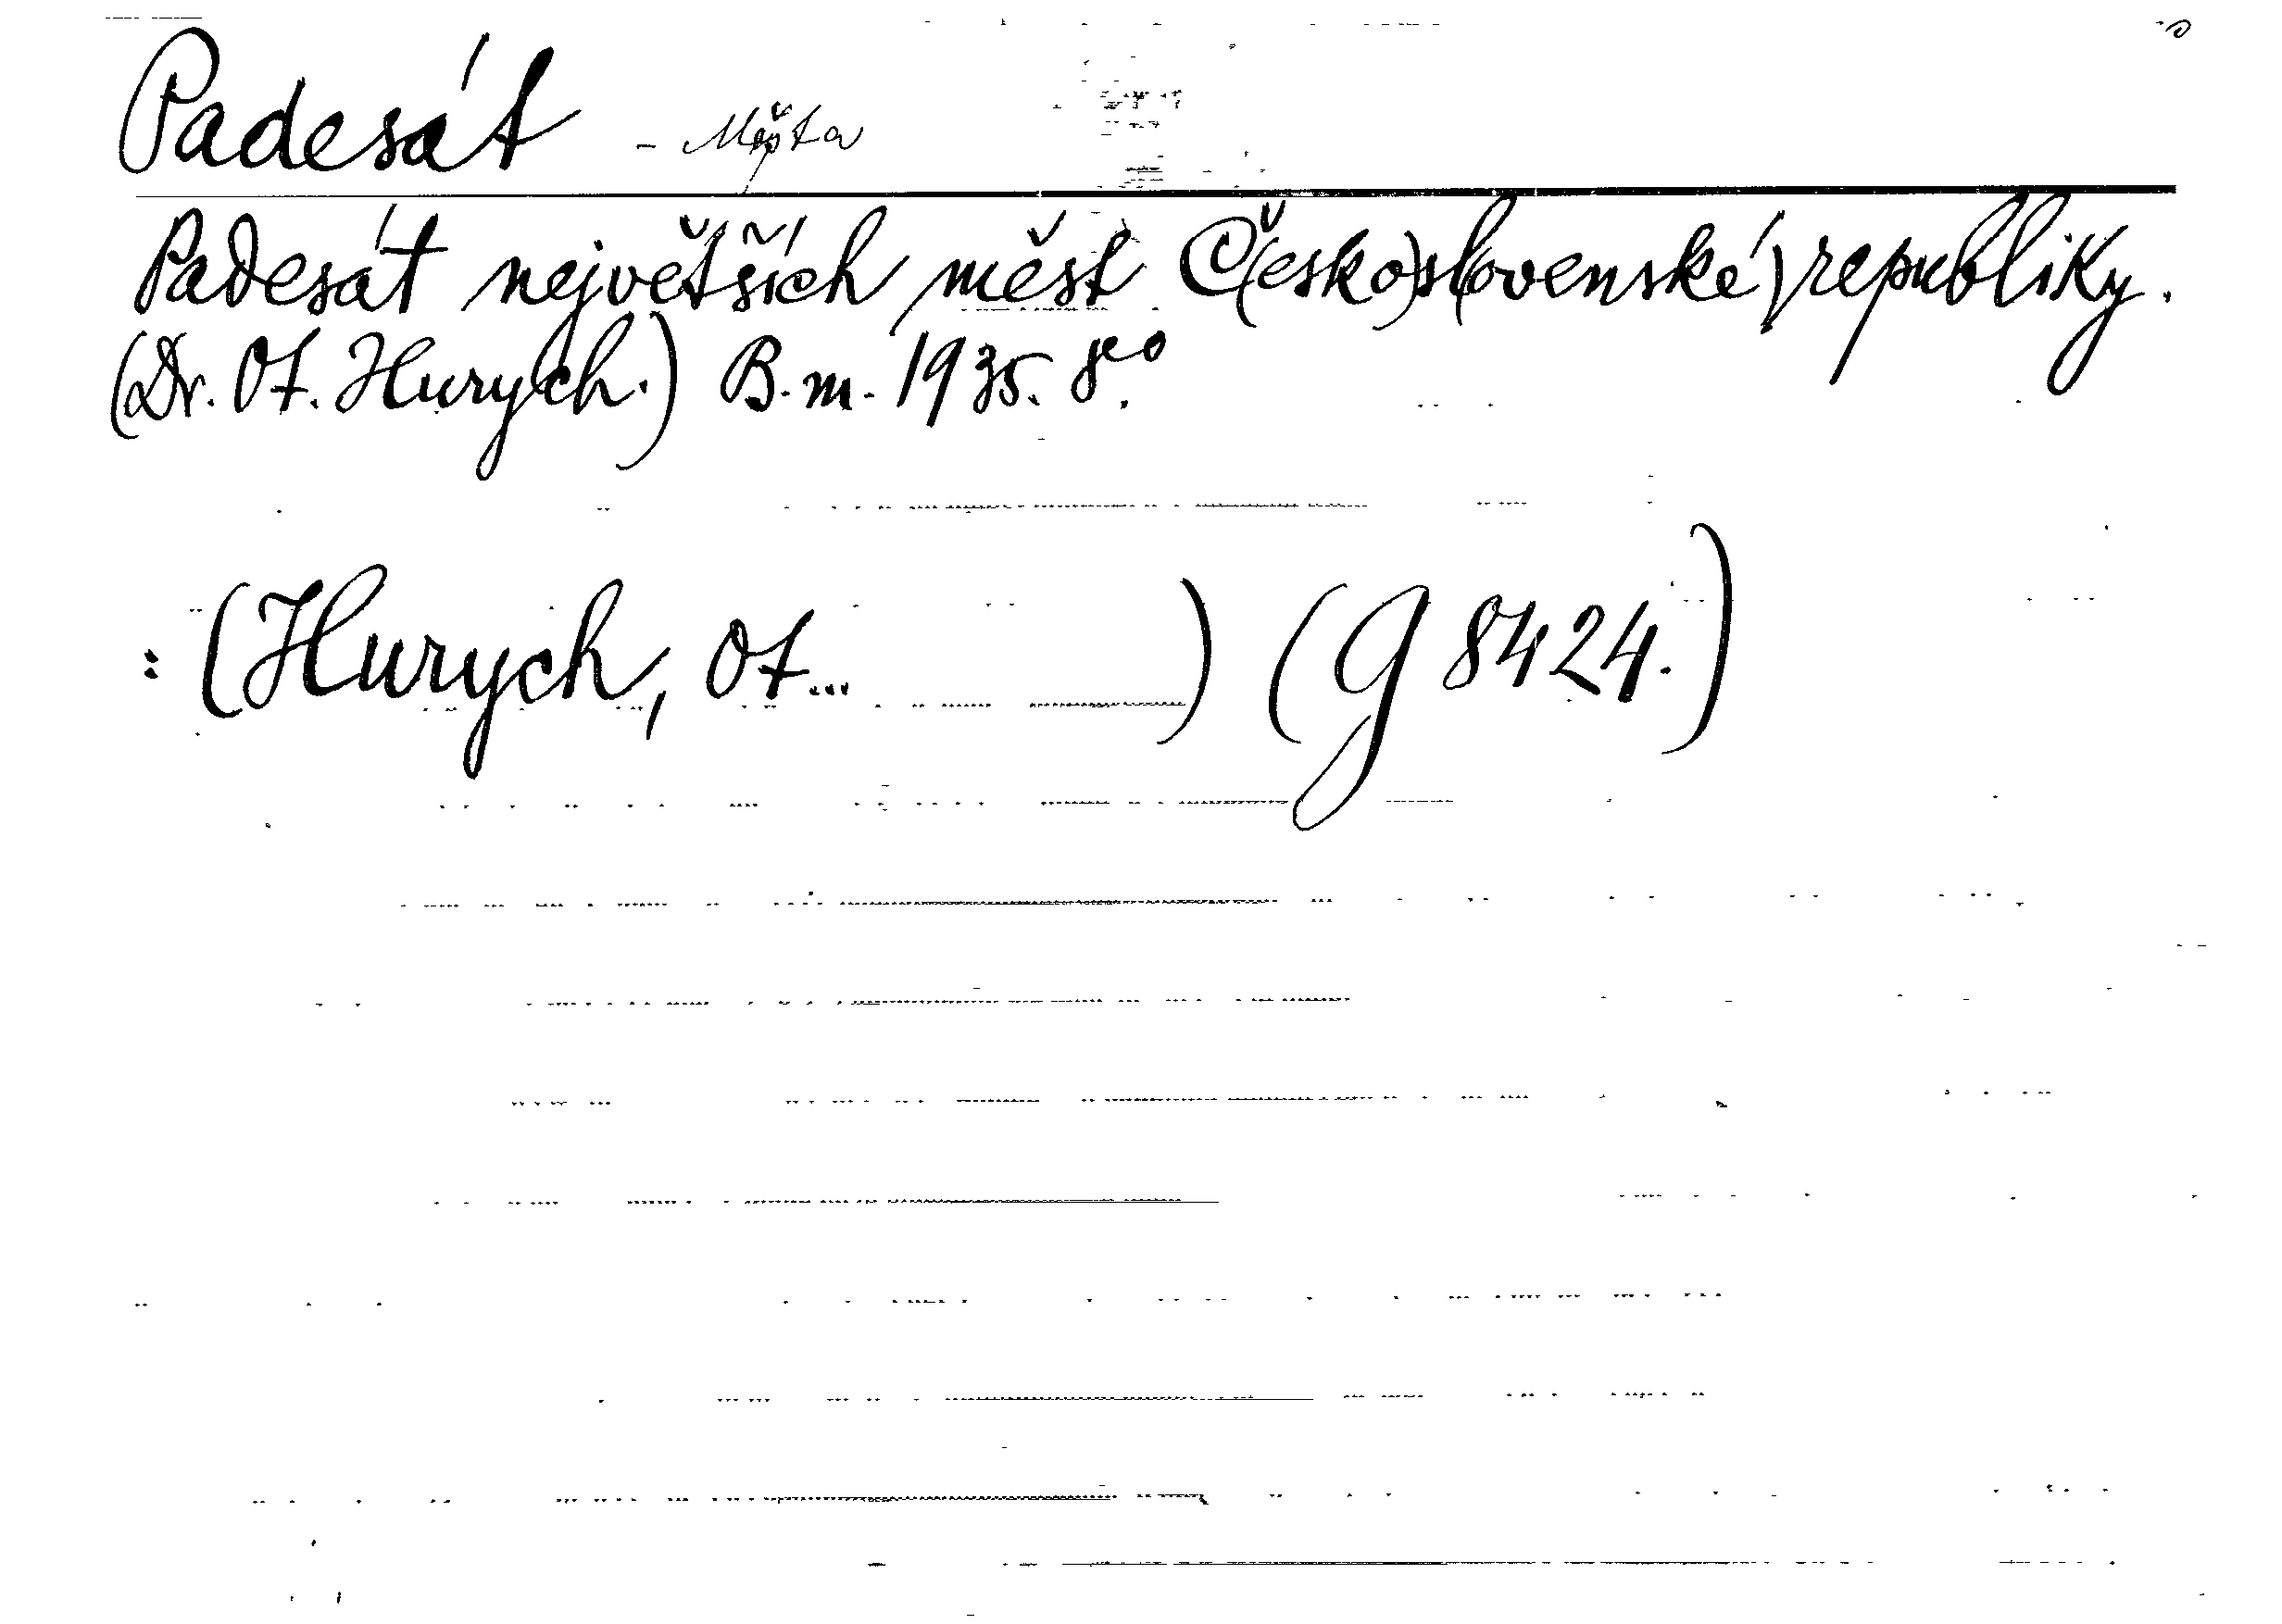 Padesát - Města
Padesát největších měst Č(esko)sl(ovenské) republiky.
(Dr. Ot. Hurych.) B. m. 1935. 8°.
: (Hurych, Ot... ) (G 8424.)